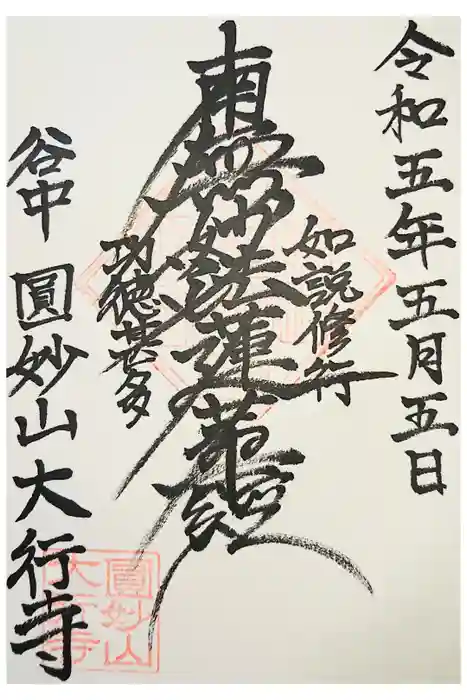 令和五年五月五日
如説修行
南無妙法蓮華経
功徳甚多
谷中 圓妙山大行寺
圓妙山
大行寺